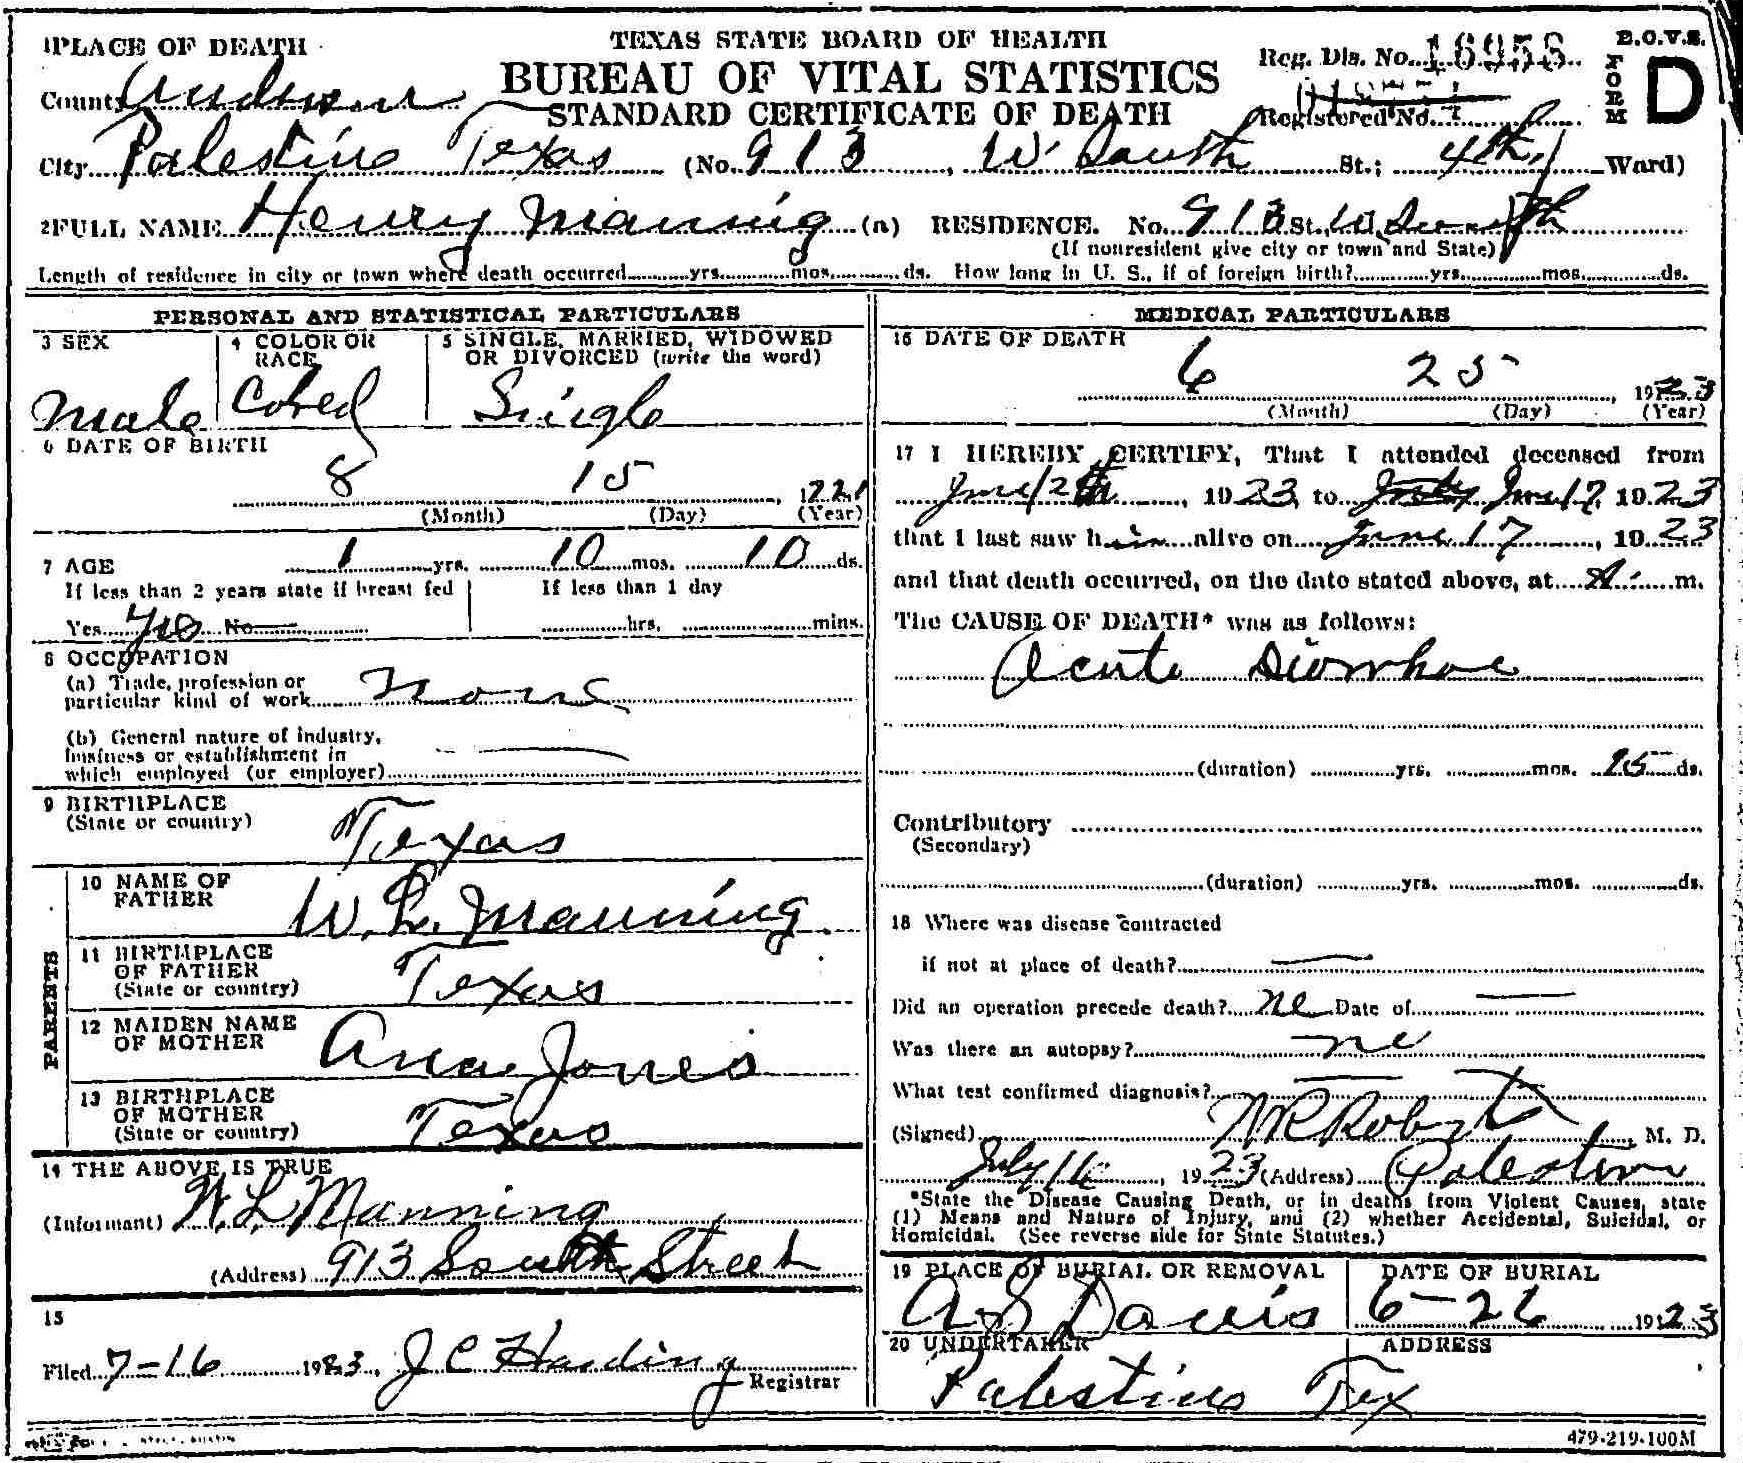 TEXAS STATE BOARD OF HEALTH
BUREAU OF VITAL STATISTICS
STANDARD CERTIFICATE OF DEATH
B.O.V.S.
FORM D
Reg. Dis. No. 16958
Registered No.
1 PLACE OF DEATH
County Anderson
City Palestine Texas (No. 913, W South St.; 4th Ward)
2 FULL NAME Henry Manning (a) RESIDENCE. No. 913 St., W. South
(If nonresident give city or town and State)
Length of residence in city or town where death occurred yrs. mos. ds. How long in U. S., if of foreign birth? yrs. mos. ds.
PERSONAL AND STATISTICAL PARTICULARS
3 SEX
Male
4 COLOR OR RACE
Colred
5 SINGLE, MARRIED, WIDOWED
OR DIVORCED (write the word)
Single
6 DATE OF BIRTH
8 15, 1921
(Month) (Day) (Year)
7 AGE 1 yrs. 10 mos. 10 ds.
If less than 2 years state if breast fed
Yes yes No
If less than 1 day
hrs. mins.
8 OCCUPATION
(a) Trade, profession or
particular kind of work None
(b) General nature of industry,
business or establishment in
which employed (or employer)
9 BIRTHPLACE
(State or country) Texas
PARENTS
10 NAME OF
FATHER W. L. Manning
11 BIRTHPLACE
OF FATHER
(State or country) Texas
12 MAIDEN NAME
OF MOTHER Ana Jones
13 BIRTHPLACE
OF MOTHER
(State or country) Texas
14 THE ABOVE IS TRUE
(Informant) W. L Manning
(Address) 913 South Street
15
Filed 7-16 1923, J C Harding
Registrar
MEDICAL PARTICULARS
16 DATE OF DEATH
6 25 1923
(Month) (Day) (Year)
17 I HEREBY CERTIFY, That I attended deceased from
June 12th, 1923, to June 17, 1923
that I last saw him alive on June 17, 1923
and that death occurred, on the date stated above, at A. m.
The CAUSE OF DEATH* was as follows:
Acute Diorrhoe
(duration) yrs. mos. 15 ds.
Contributory
(Secondary)
(duration) yrs. mos. ds.
18 Where was disease contracted
if not at place of death?
Did an operation precede death? no Date of
Was there an autopsy? no
What test confirmed diagnosis?
(Signed) Roberts, M. D.
July 16, 1923 (Address) Palestine
*State the Disease Causing Death, or in deaths from Violent Causes, state
(1) Means and Nature of Injury, and (2) whether Accidental, Suicidal, or
Homicidal. (See reverse side for State Statutes.)
19 PLACE OF BURIAL OR REMOVAL
A S Davis
DATE OF BURIAL
6-26 1923
20 UNDERTAKER
ADDRESS
Palestine Tex
479-219-100M